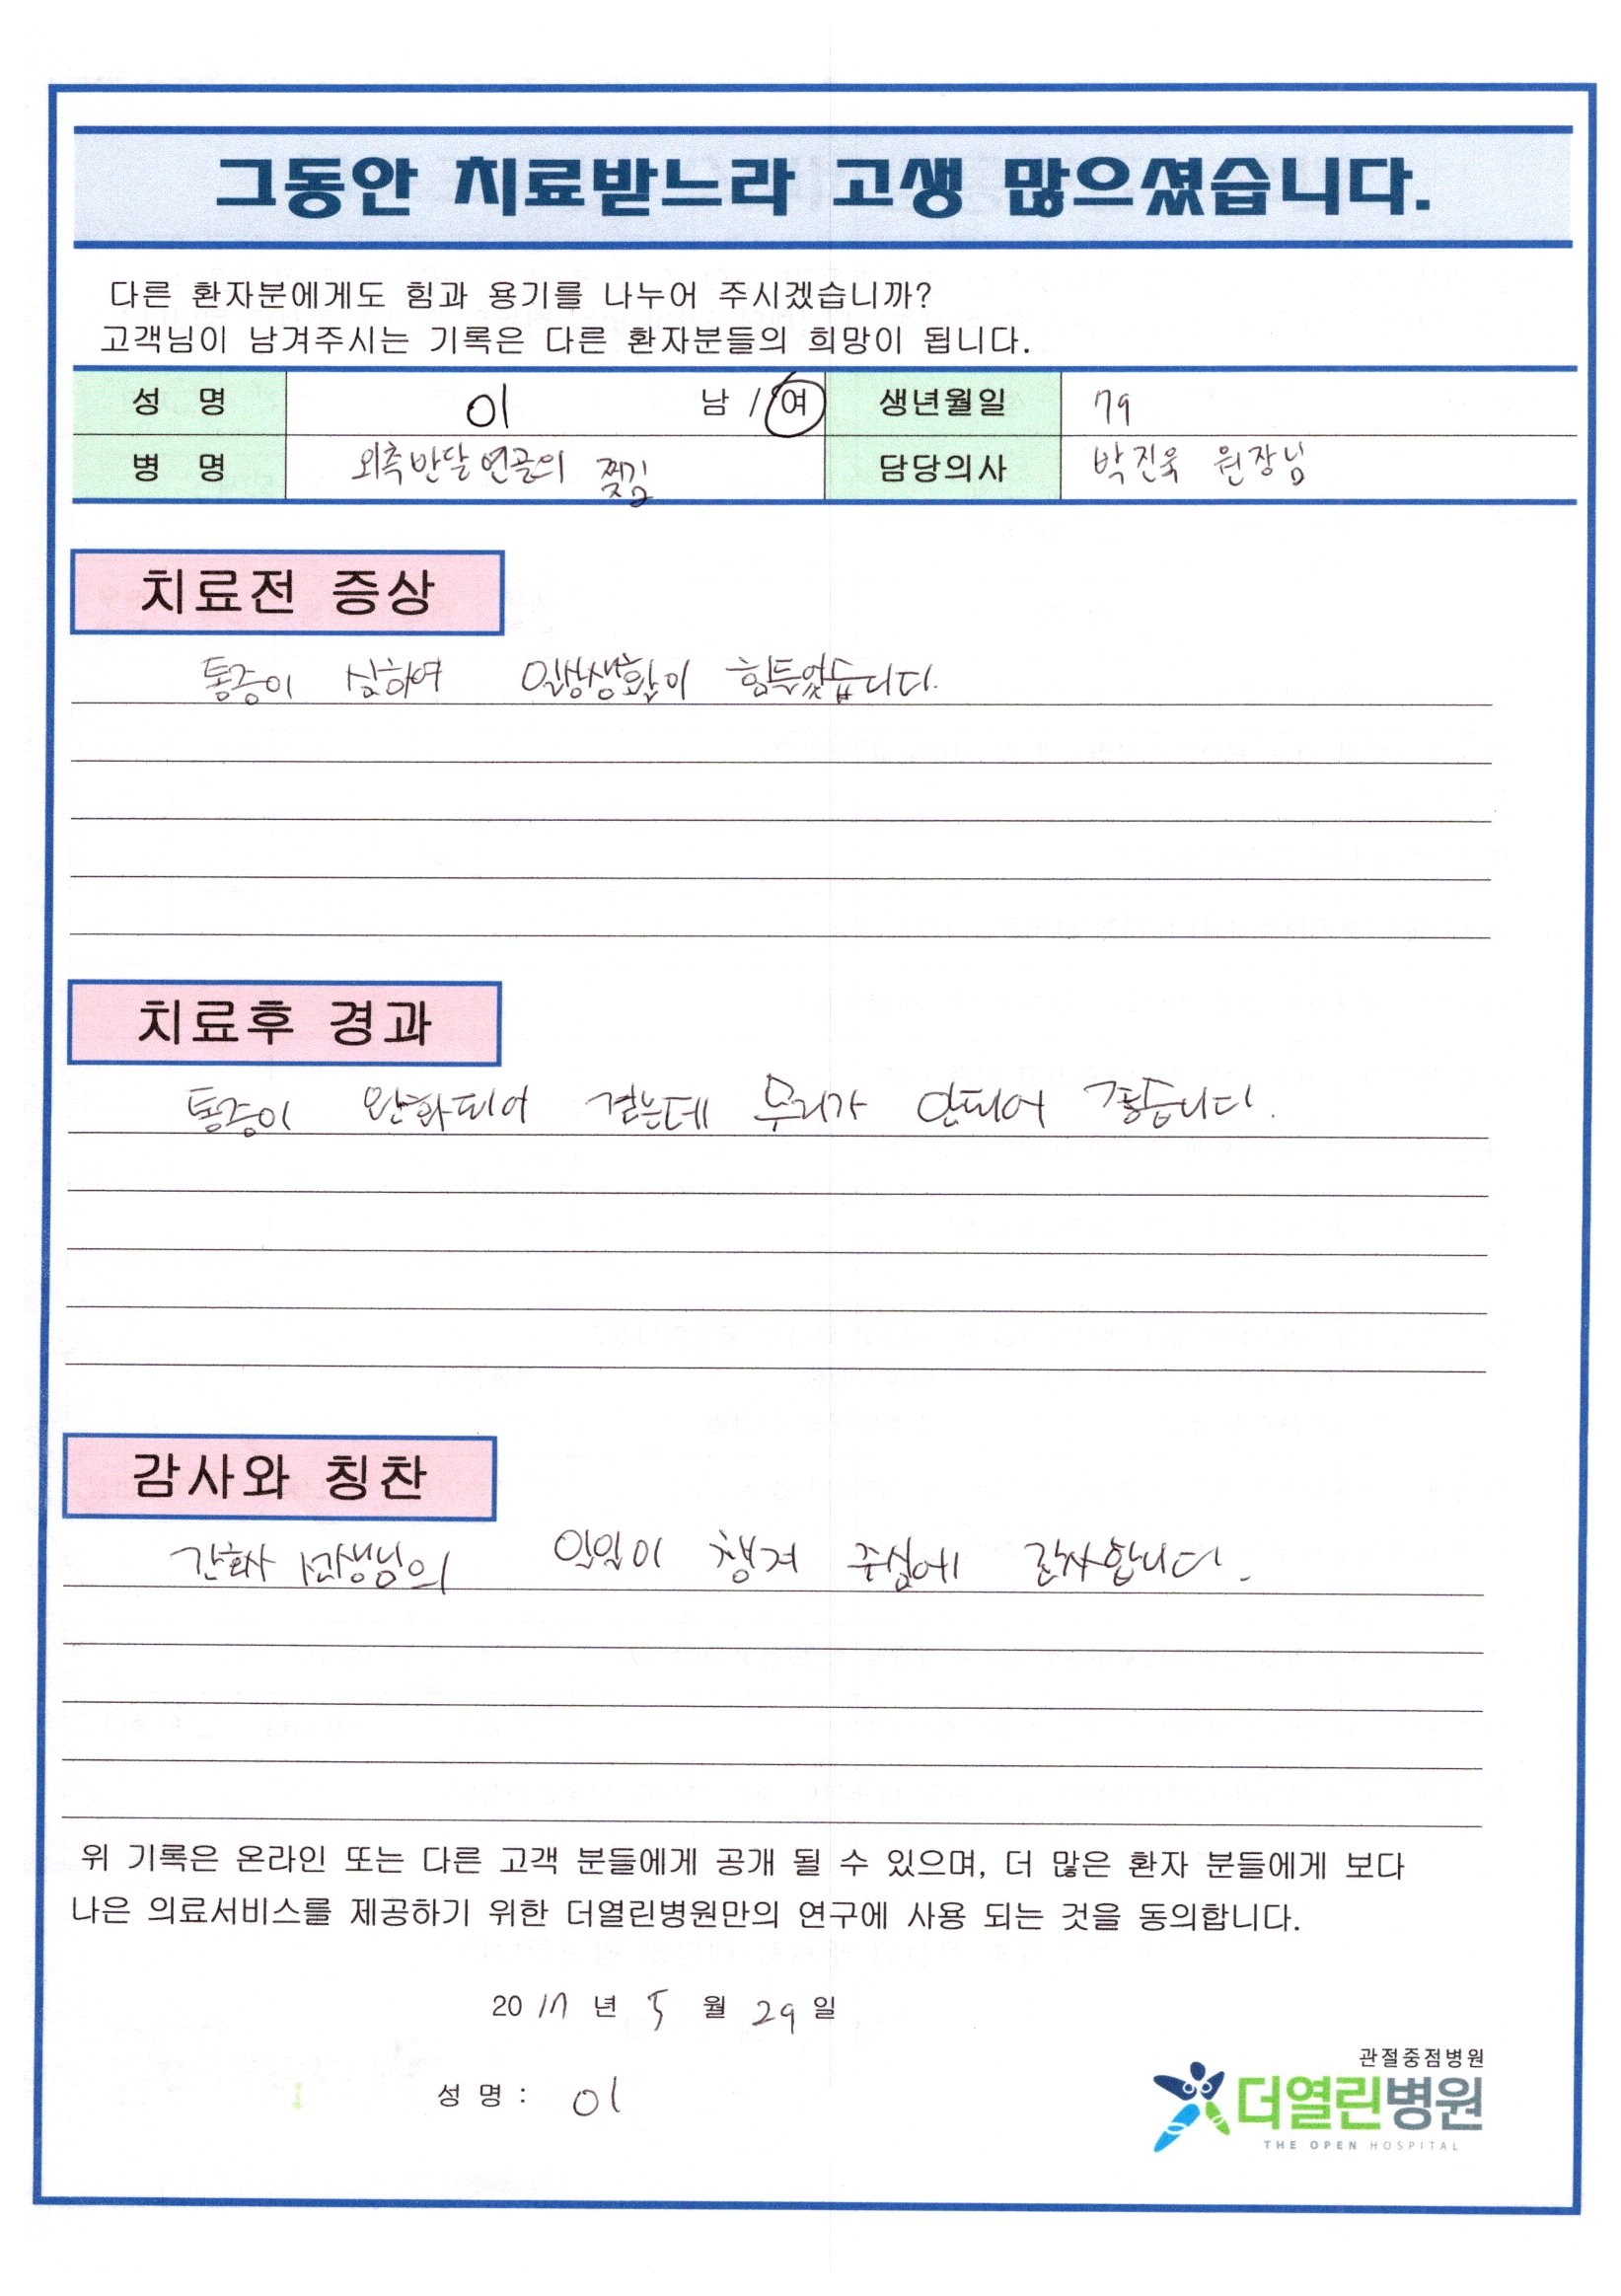 그동안 치료받느라 고생 많으셨습니다.
다른 환자분에게도 힘과 용기를 나누어 주시겠습니까?
고객님이 남겨주시는 기록은 다른 환자분들의 희망이 됩니다.
성 명 이 남 / 여 생년월일 79
병 명 외측반달연골의 찢김 담당의사 박진욱 원장님
치료전 증상
통증이 심하여 일상생활이 힘들었습니다.
치료후 경과
통증이 완화되어 걷는데 무리가 안되어 좋습니다.
감사와 칭찬
간호사 선생님의 일일이 챙겨 주심에 감사합니다.
위 기록은 온라인 또는 다른 고객 분들에게 공개 될 수 있으며, 더 많은 환자 분들에게 보다
나은 의료서비스를 제공하기 위한 더열린병원만의 연구에 사용 되는 것을 동의합니다.
2017 년 5 월 29 일
성 명 : 이
관절중점병원
더열린병원
THE OPEN HOSPITAL